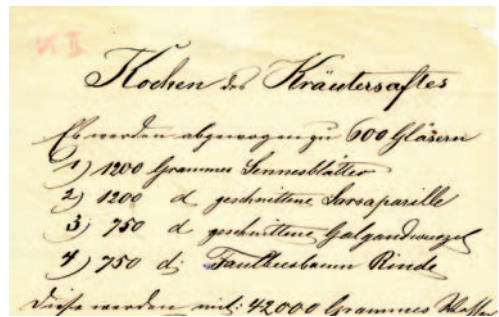 N II
Kochen des Kräutersaftes
Es werden abgewogen zu 600 Gläsern
1) 1200 Grammes Sennesblätter
2) 1200 d geschnittene Sarsaparille
3) 750 d geschnittene Galgandwurzel
4) 750 d: Faulbeerbaum Rinde
Diese werden mit: 42000 Grammes Wasser